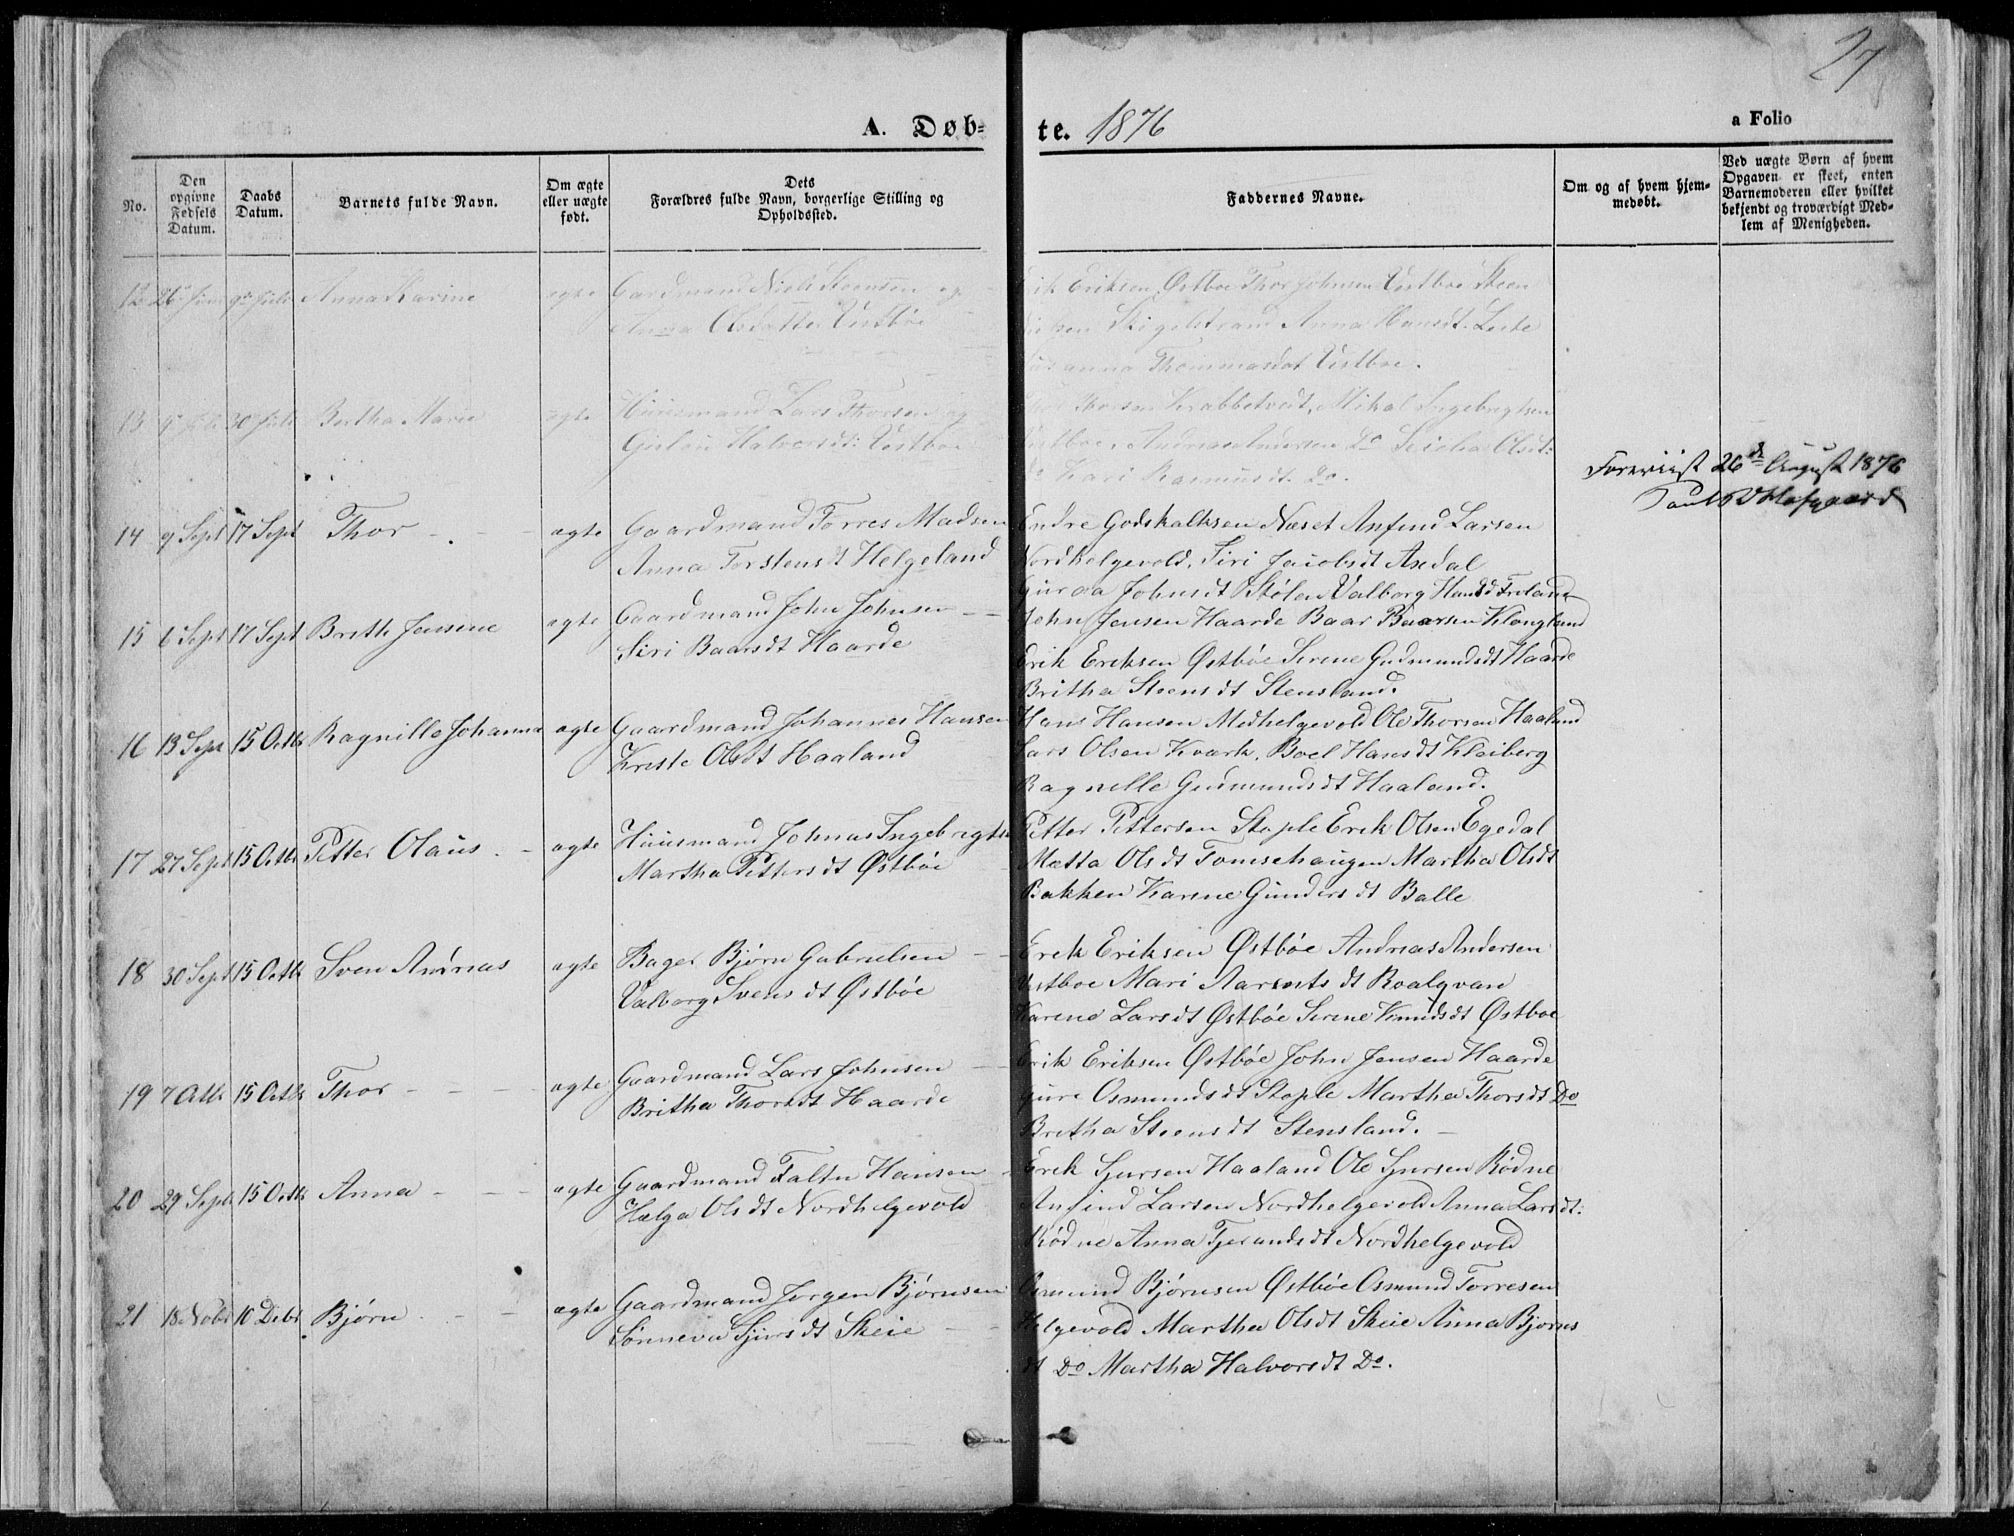 27
A. Døb-
te. 1876
a Folio
No.
Den opgivne Fødsels Datum.
Daabs Datum.
Barnets fulde Navn.
Om ægte eller uægte født.
Dets Forældres fulde Navn, borgerlige Stilling og Opholdssted.
Faddernes Navne.
Om og af hvem hjemmedøbt.
Ved uægte Børn af hvem Opgaven er skeet, enten Barnemoderen eller hvilket bekjendt og troværdigt Medlem af Menigheden.
12 26 Juni 9 Juli Anna Karine ægte Gardmand Niels Steensen og
Anna Olsdatter Vestbøe
Erik Eriksen Østboe Thor Johnsen Vestboe Steen
Skigelstrand Anna Hansdt. Leite
Thommasdat Vestboe.
13 9 Juli 30 Juli Bertha Marie ægte Huusmand Lars Thorsen og
Halvorsdt: Vestboe
Thorsen Krabbetveit, Mikal Ingebrigtsen
Vestboe, Andreas Andersen Do Olsdt:
Do Kari Rasmusdt. Do.
Foreviist 26de August 1876
Hofgaard
14 9 Sept 17 Sept Thor - - - ægte Gaardmand Torres Madsen
Anna Torstensdt Helgeland
Endre Godskalksen Næset Anfind Larsen
Nordhelgevold, Siri Jacobsdt Axdal
Guroa Johnsdt Støle Valborg Hansdt Freland
15 6 Sept 17 Sept Brithe Jensine ægte Gaardmand John Johnsen - -
Siri Baarsdt Haarde
John Jensen Haarde Baar Baarsen Klongland
Erik Eriksen Østbøe Serene Gudmundsdt Haarde
Britha Steensdt Stensland.
16 13 Sept 15 Octb Ragnille Johanna ægte Gaardmand Johannes Hansen
Kreste Olsdt Haaland
Hans Hansen Medhelgevold Ole Thorsen Haaland
Lars Olsen Kvark, Boel Hansdt Kleiberg
Ragnelle Gudmundsdt Haaland.
17 27 Sept 15 Octb Petter Olaus - ægte Huusmand Johnas Ingebrigtsen
Martha Pettersdt Østbøe
Petter Pettersen Stople Erik Olsen Egedal
Mætta Olsdt Tomsehaugen Martha Olsdt
Bakken Karene Gundersdt Balle
18 30 Sept 15 Octb Sven Andreas ægte Bager Bjørn Gabrielsen - -
Valborg Svensdt Østbøe
Erek Eriksen Østbøe Andreas Andersen
Vestboe Mari Aarentsdt Roalqvam
Karene Larsdt Østbøe Serene Knudsdt Østboe
19 7 Octb 15 Octb Thor - - - ægte Gaardmand Lars Johnsen - -
Britha Thorsdt Haarde
Erik Eriksen Østbøe John Jensen Haarde
Gure Osmundsdt Stople Martha Thorsdt Do
Bretha Steensdt Stensland. -
20 29 Sept 15 Octb Anna - - - ægte Gaardmand Faltin Hansen -
Helga Olsdt Nordhelgevold
Erek Sjursen Haaland Ole Sjursen Rødne
Anfind Larsen Nordhelgevold Anna Larsdt:
Rødne Anna Tjerandsdt Nordhelgevold
21 18 Nobr 10 Debr Bjørn - - ægte Gaardmand Jørgen Bjørnsen
Sønneva Sjursdt Skeie - -
Osmund Bjørnsen Østbøe Osmund Torresen
Helgevold Martha Olsdt Skeie Anna Bjorns
dt Do Martha Halvorsdt Do.